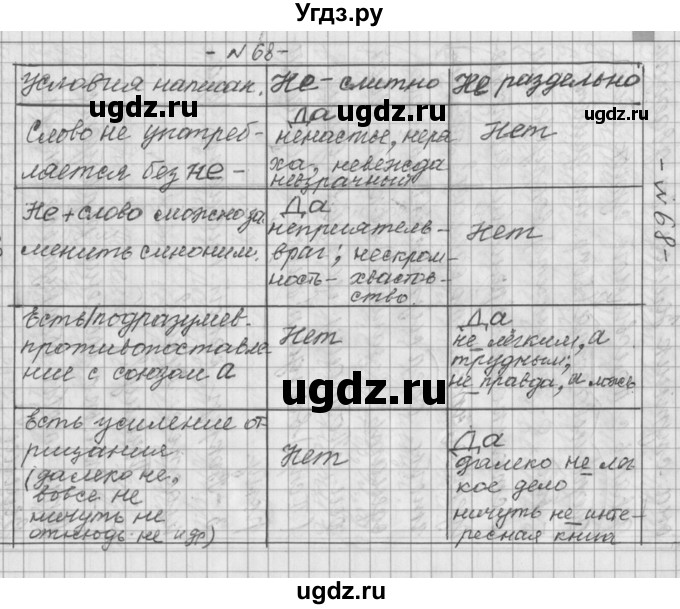 Угдз.ру
- N 68 -
Условия написан. Не - слитно Не раздельно
Слово не употреб-
лается без не -
Да
ненастье, неря
ха, невежда
невзрачный
Нет
Не + слово можно за
менить синоним.
Да
неприятель -
враг; нескром-
ность - хвастов-
ство.
Нет
Есть/подразумев.
противопоставле
ние с союзом а
Нет
Да
не лёгким, а
трудным;
не правда, а ложь
Есть усиление от
рицания
(далеко не,
вовсе не
ничуть не
отнюдь не и др)
Нет
Да
далеко не лег
кое дело
ничуть не инте-
ресная книга
- N 68 -
ugdz.ru
ugdz.ru
ugdz.ru
ugdz.ru
ugdz.ru
ugdz.ru
ugdz.ru
ugdz.ru